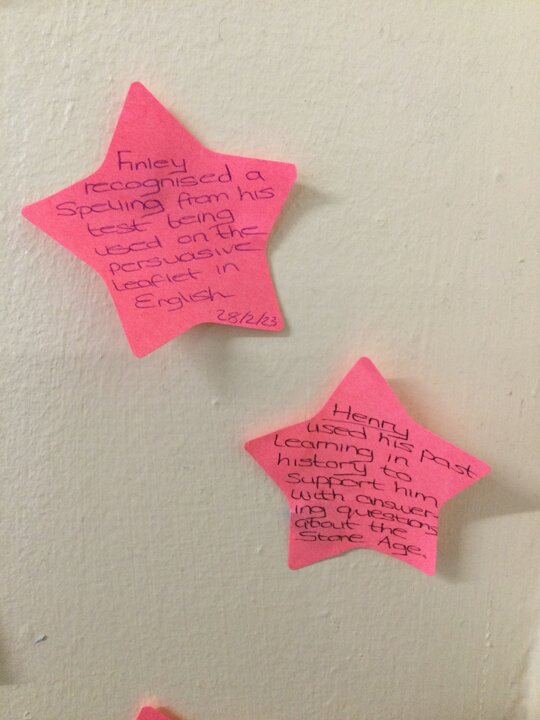 Finley
recognised a
Spelling from his
test being
used on the
persuasive
leaflet in
English
28/2/23
Henry
used his past
learning in
history to
support him
with answer-
ing questions
about the
Stone Age.